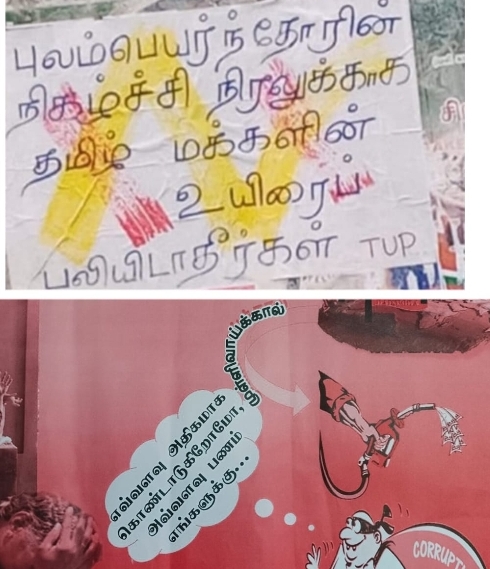 புலம்பெயர்ந்தோரின்
நிகழ்ச்சி நிரலுக்காக
தமிழ் மக்களின்
உயிரைப்
பலியிடாதீர்கள் TUP
முள்ளிவாய்க்கால்
எவ்வளவு அதிகமாக
கொண்டாடுகிறோமோ,
அவ்வளவு பணம்
எங்களுக்கு...
CORRUPTI